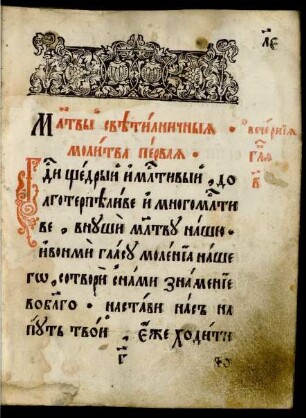 л҃є
Мл҃твы свѣтилничныѧ ·
вечерниѧ
молитва первая ·
гл҃а
Гдⷭ҇и щедрый и҆ мл҃тивый , до
в҃
лготерпѣливе и҆ многомлⷭ҇ти
ве · внуши мл҃тву нашю ·
и҆вонми гласу моленїѧ наше
гѡ , сотвори снами знаменїе
воблг҃о · настави насъ на
путь твой е҆же ходити
г҃